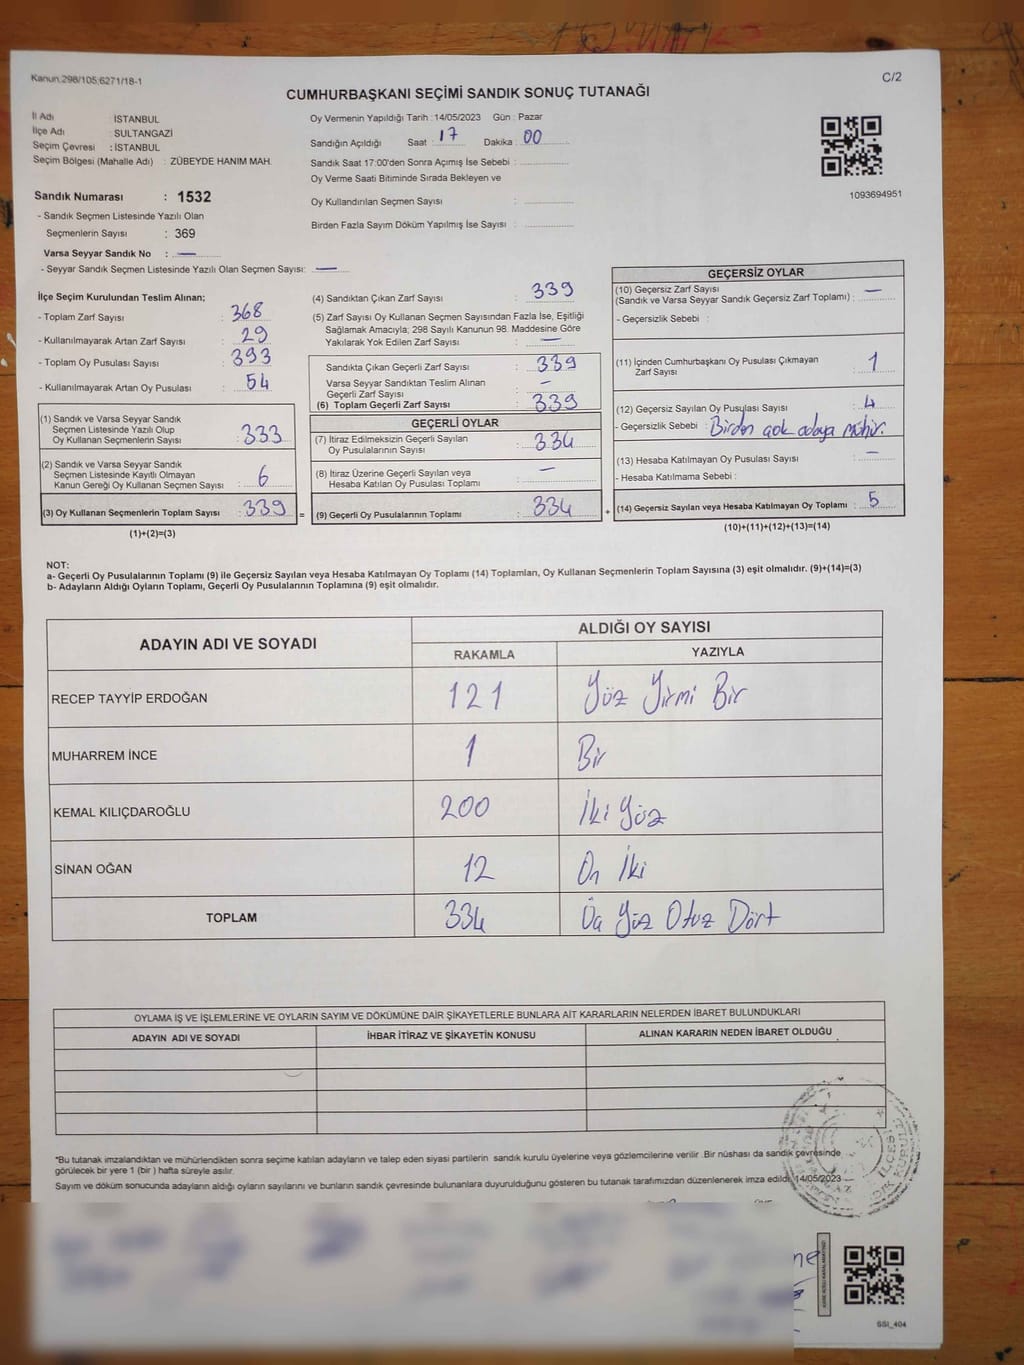 Kanun.298/105;6271/18-1
C/2
CUMHURBAŞKANI SEÇİMİ SANDIK SONUÇ TUTANAĞI
İl Adı : İSTANBUL
İlçe Adı : SULTANGAZİ
Seçim Çevresi : İSTANBUL
Seçim Bölgesi (Mahalle Adı) : ZÜBEYDE HANIM MAH.
Sandık Numarası : 1532
- Sandık Seçmen Listesinde Yazılı Olan
Seçmenlerin Sayısı : 369
Varsa Seyyar Sandık No : —
- Seyyar Sandık Seçmen Listesinde Yazılı Olan Seçmen Sayısı: —
Oy Vermenin Yapıldığı Tarih : 14/05/2023 Gün : Pazar
Sandığın Açıldığı Saat : 17 Dakika : 00
Sandık Saat 17:00'den Sonra Açımış İse Sebebi :
Oy Verme Saati Bitiminde Sırada Bekleyen ve
Oy Kullandırılan Seçmen Sayısı :
Birden Fazla Sayım Döküm Yapılmış İse Sayısı :
1093694951
İlçe Seçim Kurulundan Teslim Alınan;
- Toplam Zarf Sayısı : 368
- Kullanılmayarak Artan Zarf Sayısı : 29
- Toplam Oy Pusulası Sayısı : 393
- Kullanılmayarak Artan Oy Pusulası : 54
(1) Sandık ve Varsa Seyyar Sandık
Seçmen Listesinde Yazılı Olup
Oy Kullanan Seçmenlerin Sayısı : 333
(2) Sandık ve Varsa Seyyar Sandık
Seçmen Listesinde Kayıtlı Olmayan
Kanun Gereği Oy Kullanan Seçmen Sayısı : 6
(3) Oy Kullanan Seçmenlerin Toplam Sayısı : 339
(1)+(2)=(3)
=
(4) Sandıktan Çıkan Zarf Sayısı : 339
(5) Zarf Sayısı Oy Kullanan Seçmen Sayısından Fazla İse, Eşitliği
Sağlamak Amacıyla; 298 Sayılı Kanunun 98. Maddesine Göre
Yakılarak Yok Edilen Zarf Sayısı : —
Sandıkta Çıkan Geçerli Zarf Sayısı : 339
Varsa Seyyar Sandıktan Teslim Alınan
Geçerli Zarf Sayısı : —
(6) Toplam Geçerli Zarf Sayısı : 339
GEÇERLİ OYLAR
(7) İtiraz Edilmeksizin Geçerli Sayılan
Oy Pusulalarının Sayısı : 334
(8) İtiraz Üzerine Geçerli Sayılan veya
Hesaba Katılan Oy Pusulası Toplamı : —
(9) Geçerli Oy Pusulalarının Toplamı : 334
+
GEÇERSİZ OYLAR
(10) Geçersiz Zarf Sayısı
(Sandık ve Varsa Seyyar Sandık Geçersiz Zarf Toplamı) : —
- Geçersizlik Sebebi :
(11) İçinden Cumhurbaşkanı Oy Pusulası Çıkmayan
Zarf Sayısı : 1
(12) Geçersiz Sayılan Oy Pusulası Sayısı : 4
- Geçersizlik Sebebi : Birden çok adaya mühür.
(13) Hesaba Katılmayan Oy Pusulası Sayısı : —
- Hesaba Katılmama Sebebi :
(14) Geçersiz Sayılan veya Hesaba Katılmayan Oy Toplamı : 5
(10)+(11)+(12)+(13)=(14)
NOT:
a- Geçerli Oy Pusulalarının Toplamı (9) ile Geçersiz Sayılan veya Hesaba Katılmayan Oy Toplamı (14) Toplamları, Oy Kullanan Seçmenlerin Toplam Sayısına (3) eşit olmalıdır. (9)+(14)=(3)
b- Adayların Aldığı Oyların Toplamı, Geçerli Oy Pusulalarının Toplamına (9) eşit olmalıdır.
ADAYIN ADI VE SOYADI
ALDIĞI OY SAYISI
RAKAMLA YAZIYLA
RECEP TAYYİP ERDOĞAN 121 Yüz Yirmi Bir
MUHARREM İNCE 1 Bir
KEMAL KILIÇDAROĞLU 200 İki Yüz
SİNAN OĞAN 12 On İki
TOPLAM 334 Üç Yüz Otuz Dört
OYLAMA İŞ VE İŞLEMLERİNE VE OYLARIN SAYIM VE DÖKÜMÜNE DAİR ŞİKAYETLERLE BUNLARA AİT KARARLARIN NELERDEN İBARET BULUNDUKLARI
ADAYIN ADI VE SOYADI İHBAR İTİRAZ VE ŞİKAYETİN KONUSU ALINAN KARARIN NEDEN İBARET OLDUĞU
*Bu tutanak imzalandıktan ve mühürlendikten sonra seçime katılan adayların ve talep eden siyasi partilerin sandık kurulu üyelerine veya gözlemcilerine verilir .Bir nüshası da sandık çevresinde
görülecek bir yere 1 (bir ) hafta süreyle asılır.
Sayım ve döküm sonucunda adayların aldığı oyların sayılarını ve bunların sandık çevresinde bulunanlara duyurulduğunu gösteren bu tutanak tarafımızdan düzenlenerek imza edildi. 14/05/2023
SSI_404